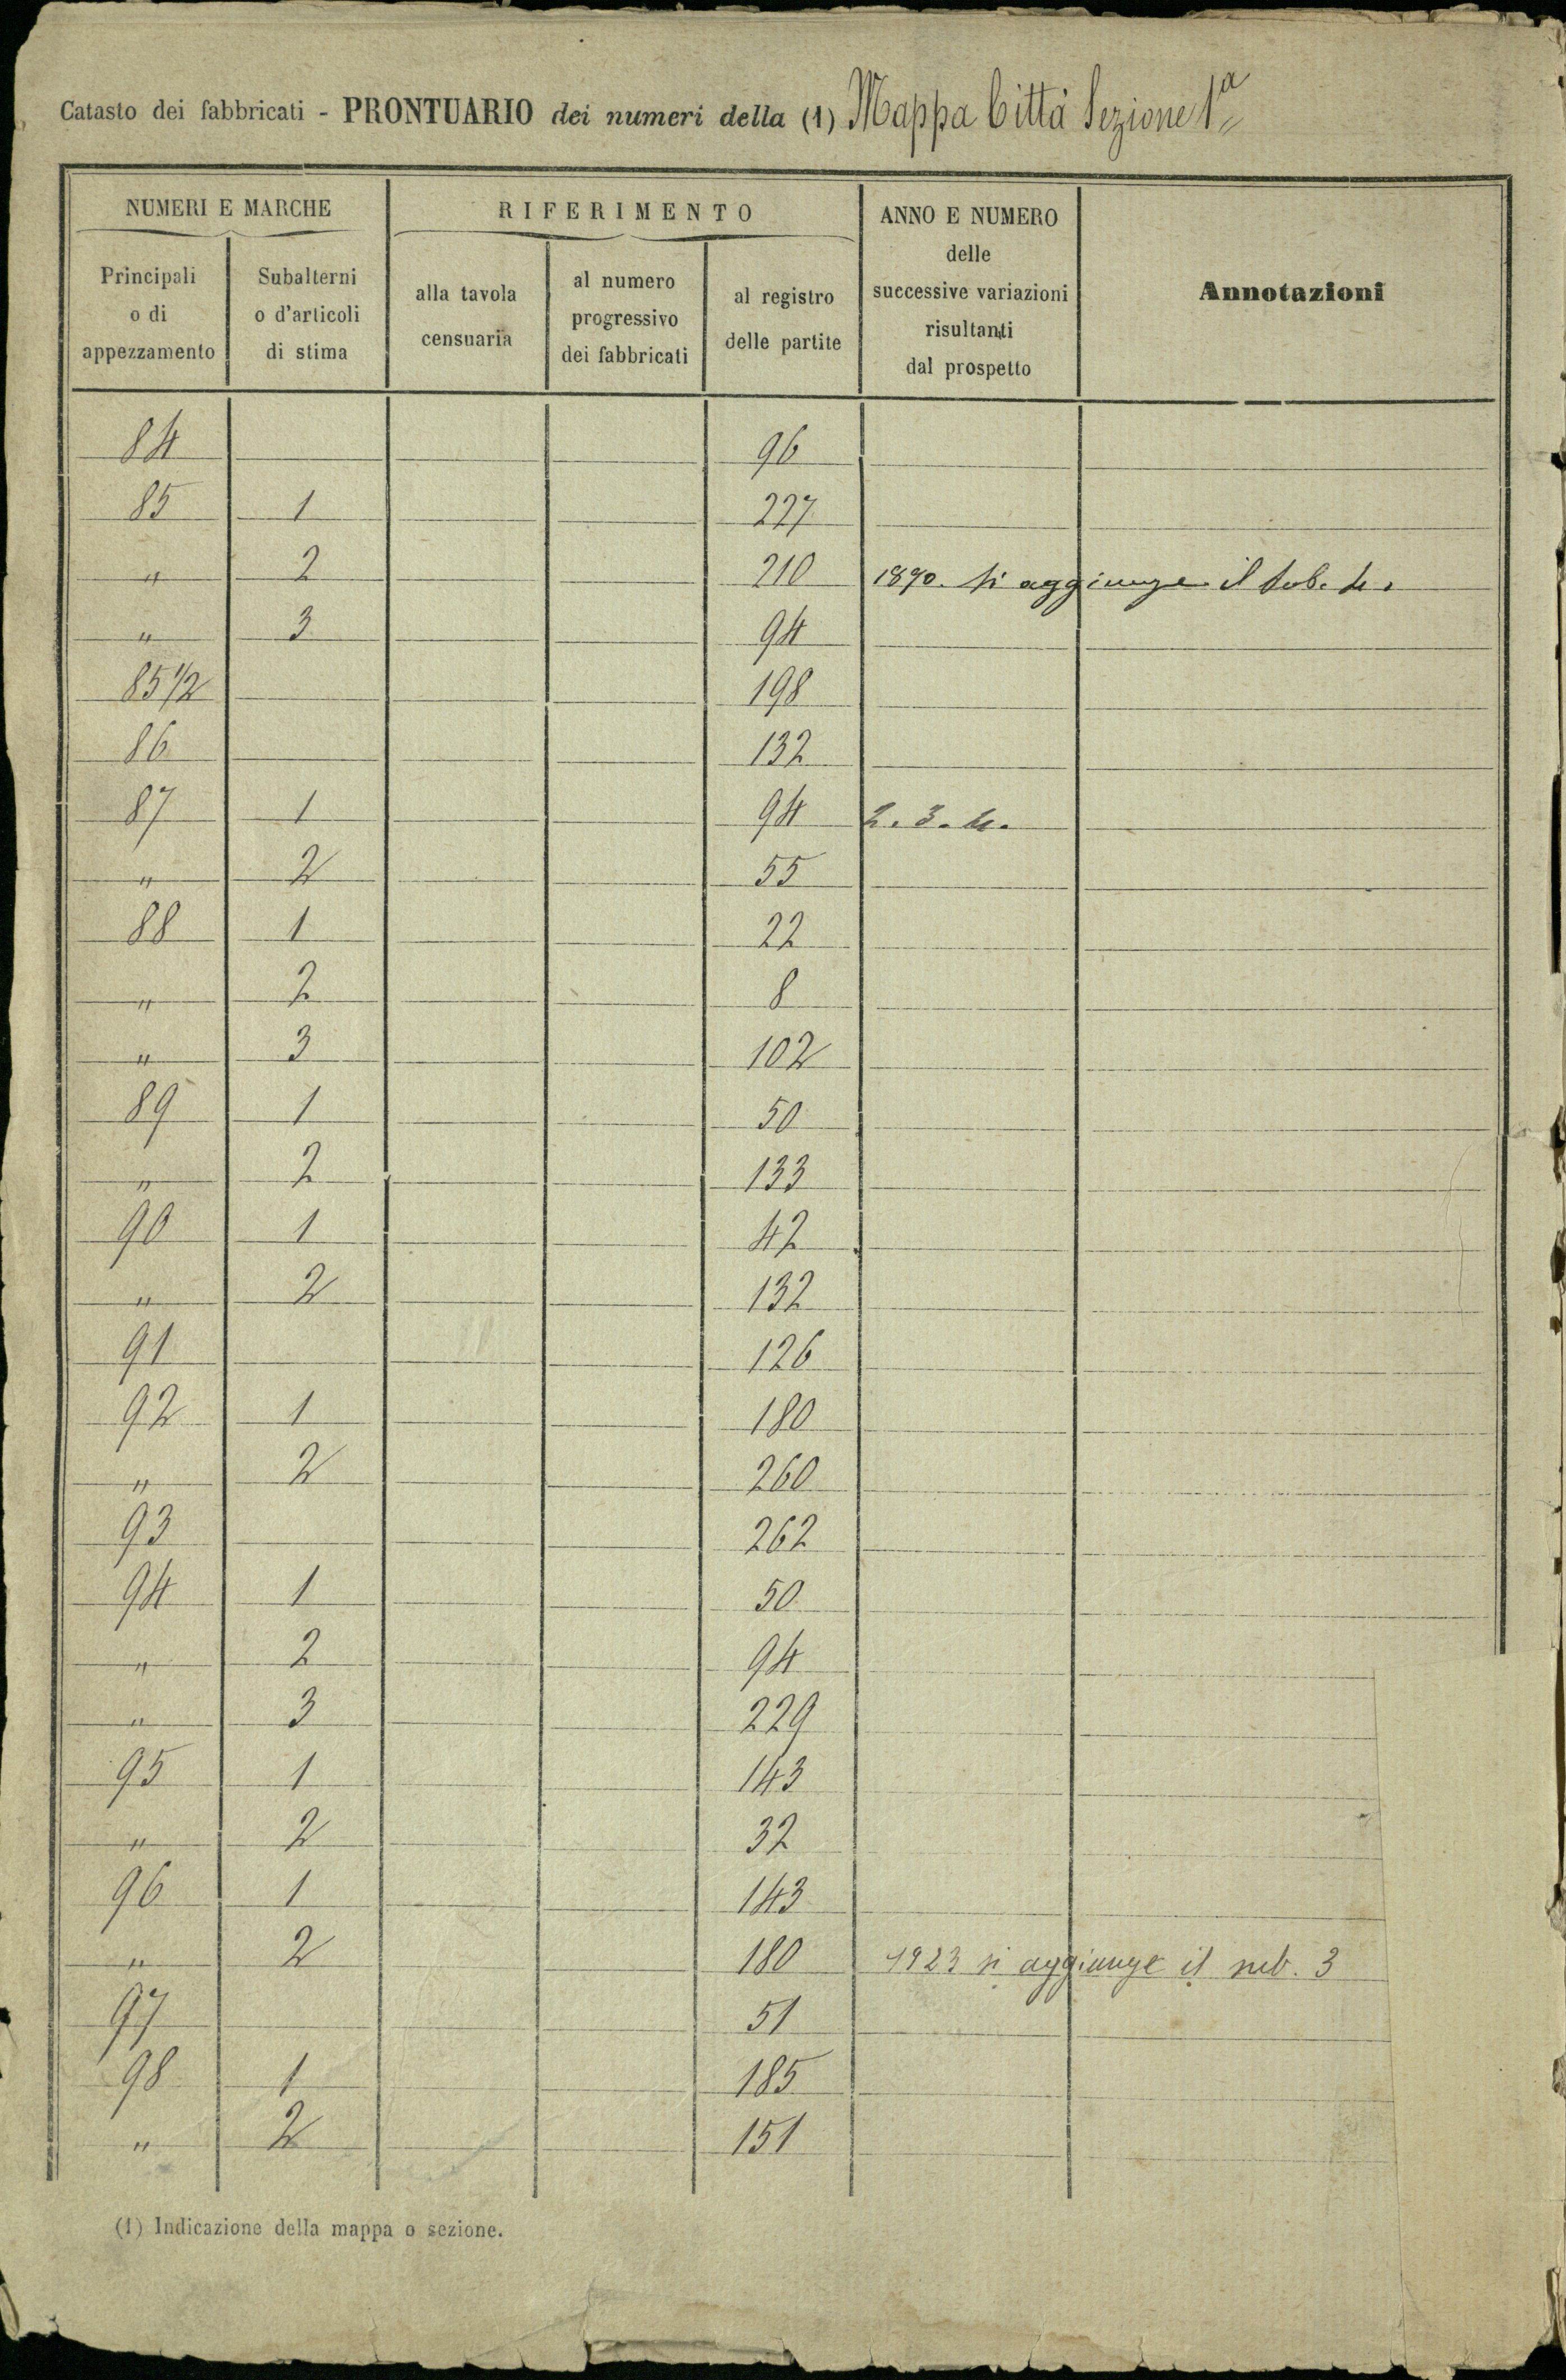 Catasto dei fabbricati - PRONTUARIO dei numeri della (1) Mappa Città Sezione 1ª
NUMERI E MARCHE
RIFERIMENTO
ANNO E NUMERO
delle
successive variazioni
risultanti
dal prospetto
Annotazioni
Principali
o di
appezzamento
Subalterni
o d'articoli
di stima
alla tavola
censuaria
al numero
progressivo
dei fabbricati
al registro
delle partite
84 96
85 1 227
" 2 210 1890. si aggiunge il sub. 4.
" 3 94
85 1/2 198
86 132
87 1 94 2. 3. 4.
" 2 55
88 1 22
" 2 8
" 3 102
89 1 50
" 2 133
90 1 42
" 2 132
91 126
92 1 180
" 2 260
93 262
94 1 50
" 2 94
" 3 229
95 1 143
" 2 32
96 1 143
" 2 180 1923 si aggiunge il sub. 3
97 51
98 1 185
" 2 151
(1) Indicazione della mappa o sezione.